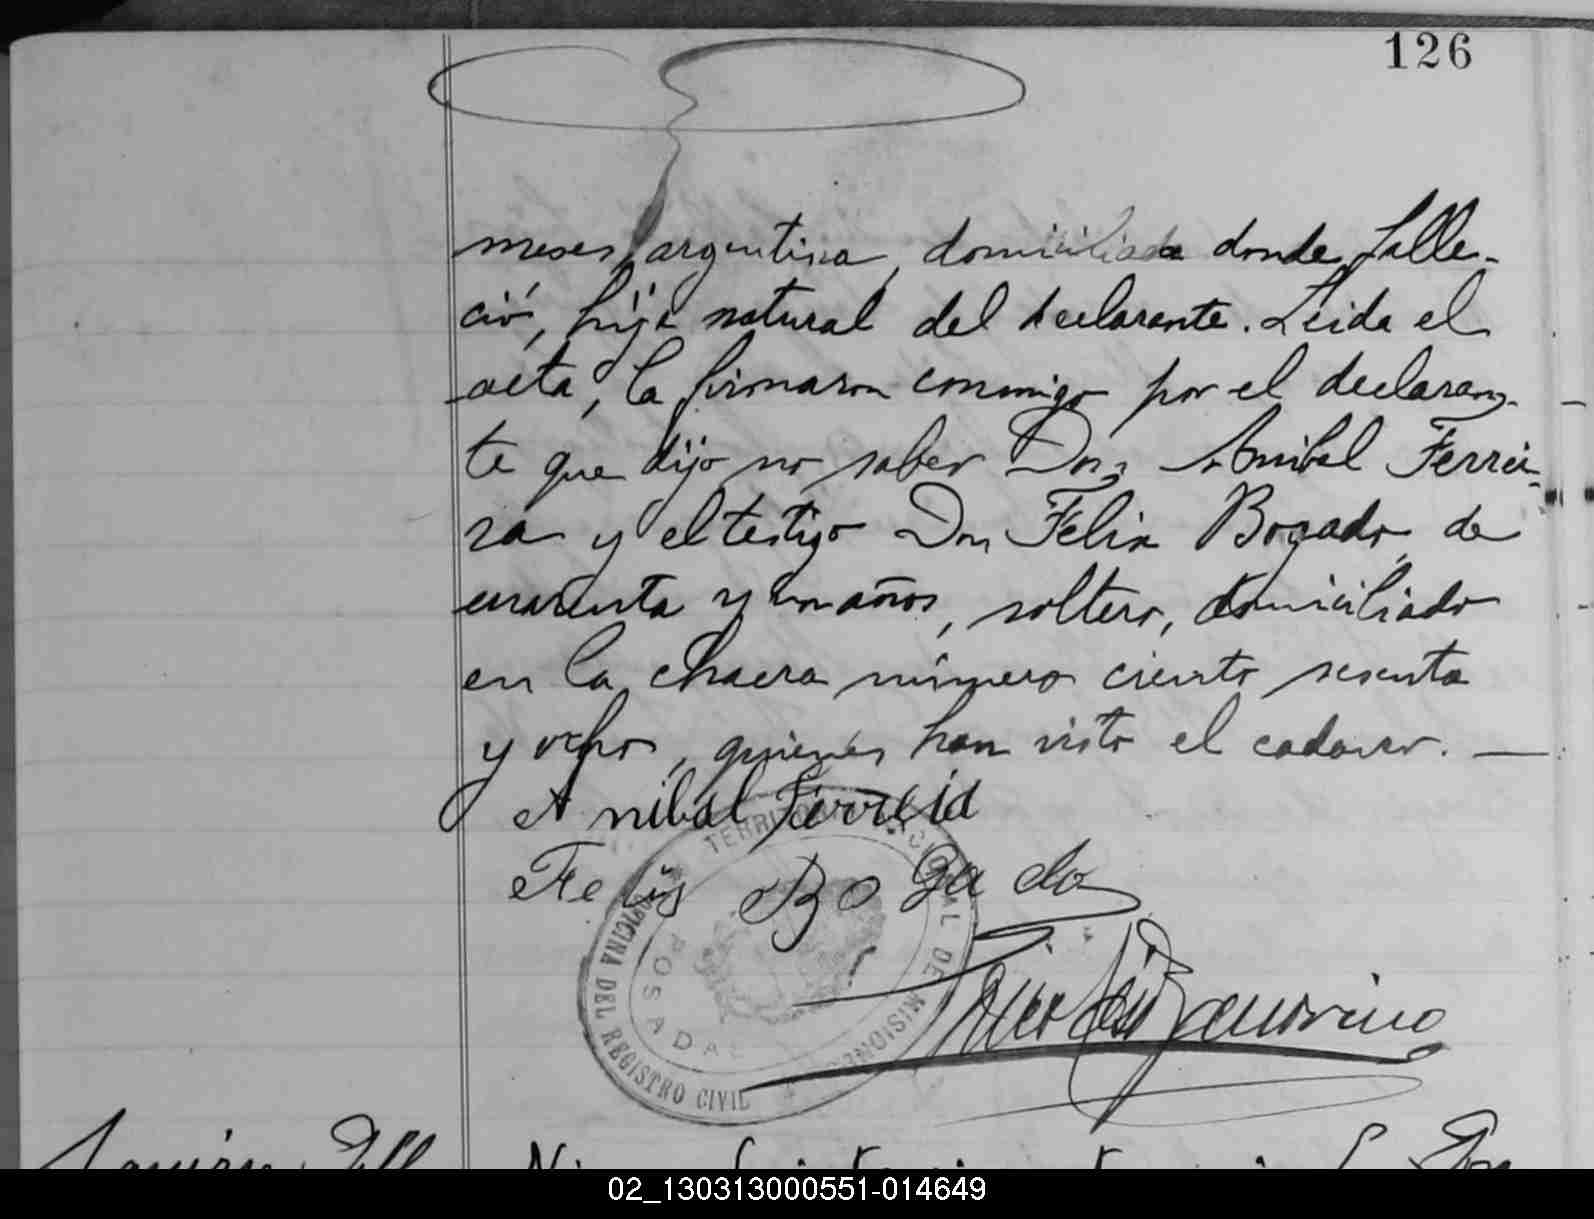 126
meses, argentina, domiciliada donde falle-
ció, hija natural del declarante. Leida el
acta, la firmaron conmigo por el declaran-
te que dijo no saber Don Anibal Ferrei-
ra y el testigo Don Felix Bogado, de
cuarenta y un años, soltero, domiciliado
en la chacra número ciento sesenta
y ocho, quienes han visto el cadaver. —
Anibal Ferreia
Felis Bogado
TERRITORIO NACIONAL DE MISIONES
OFICINA DEL REGISTRO CIVIL
POSADAS
02_130313000551-014649